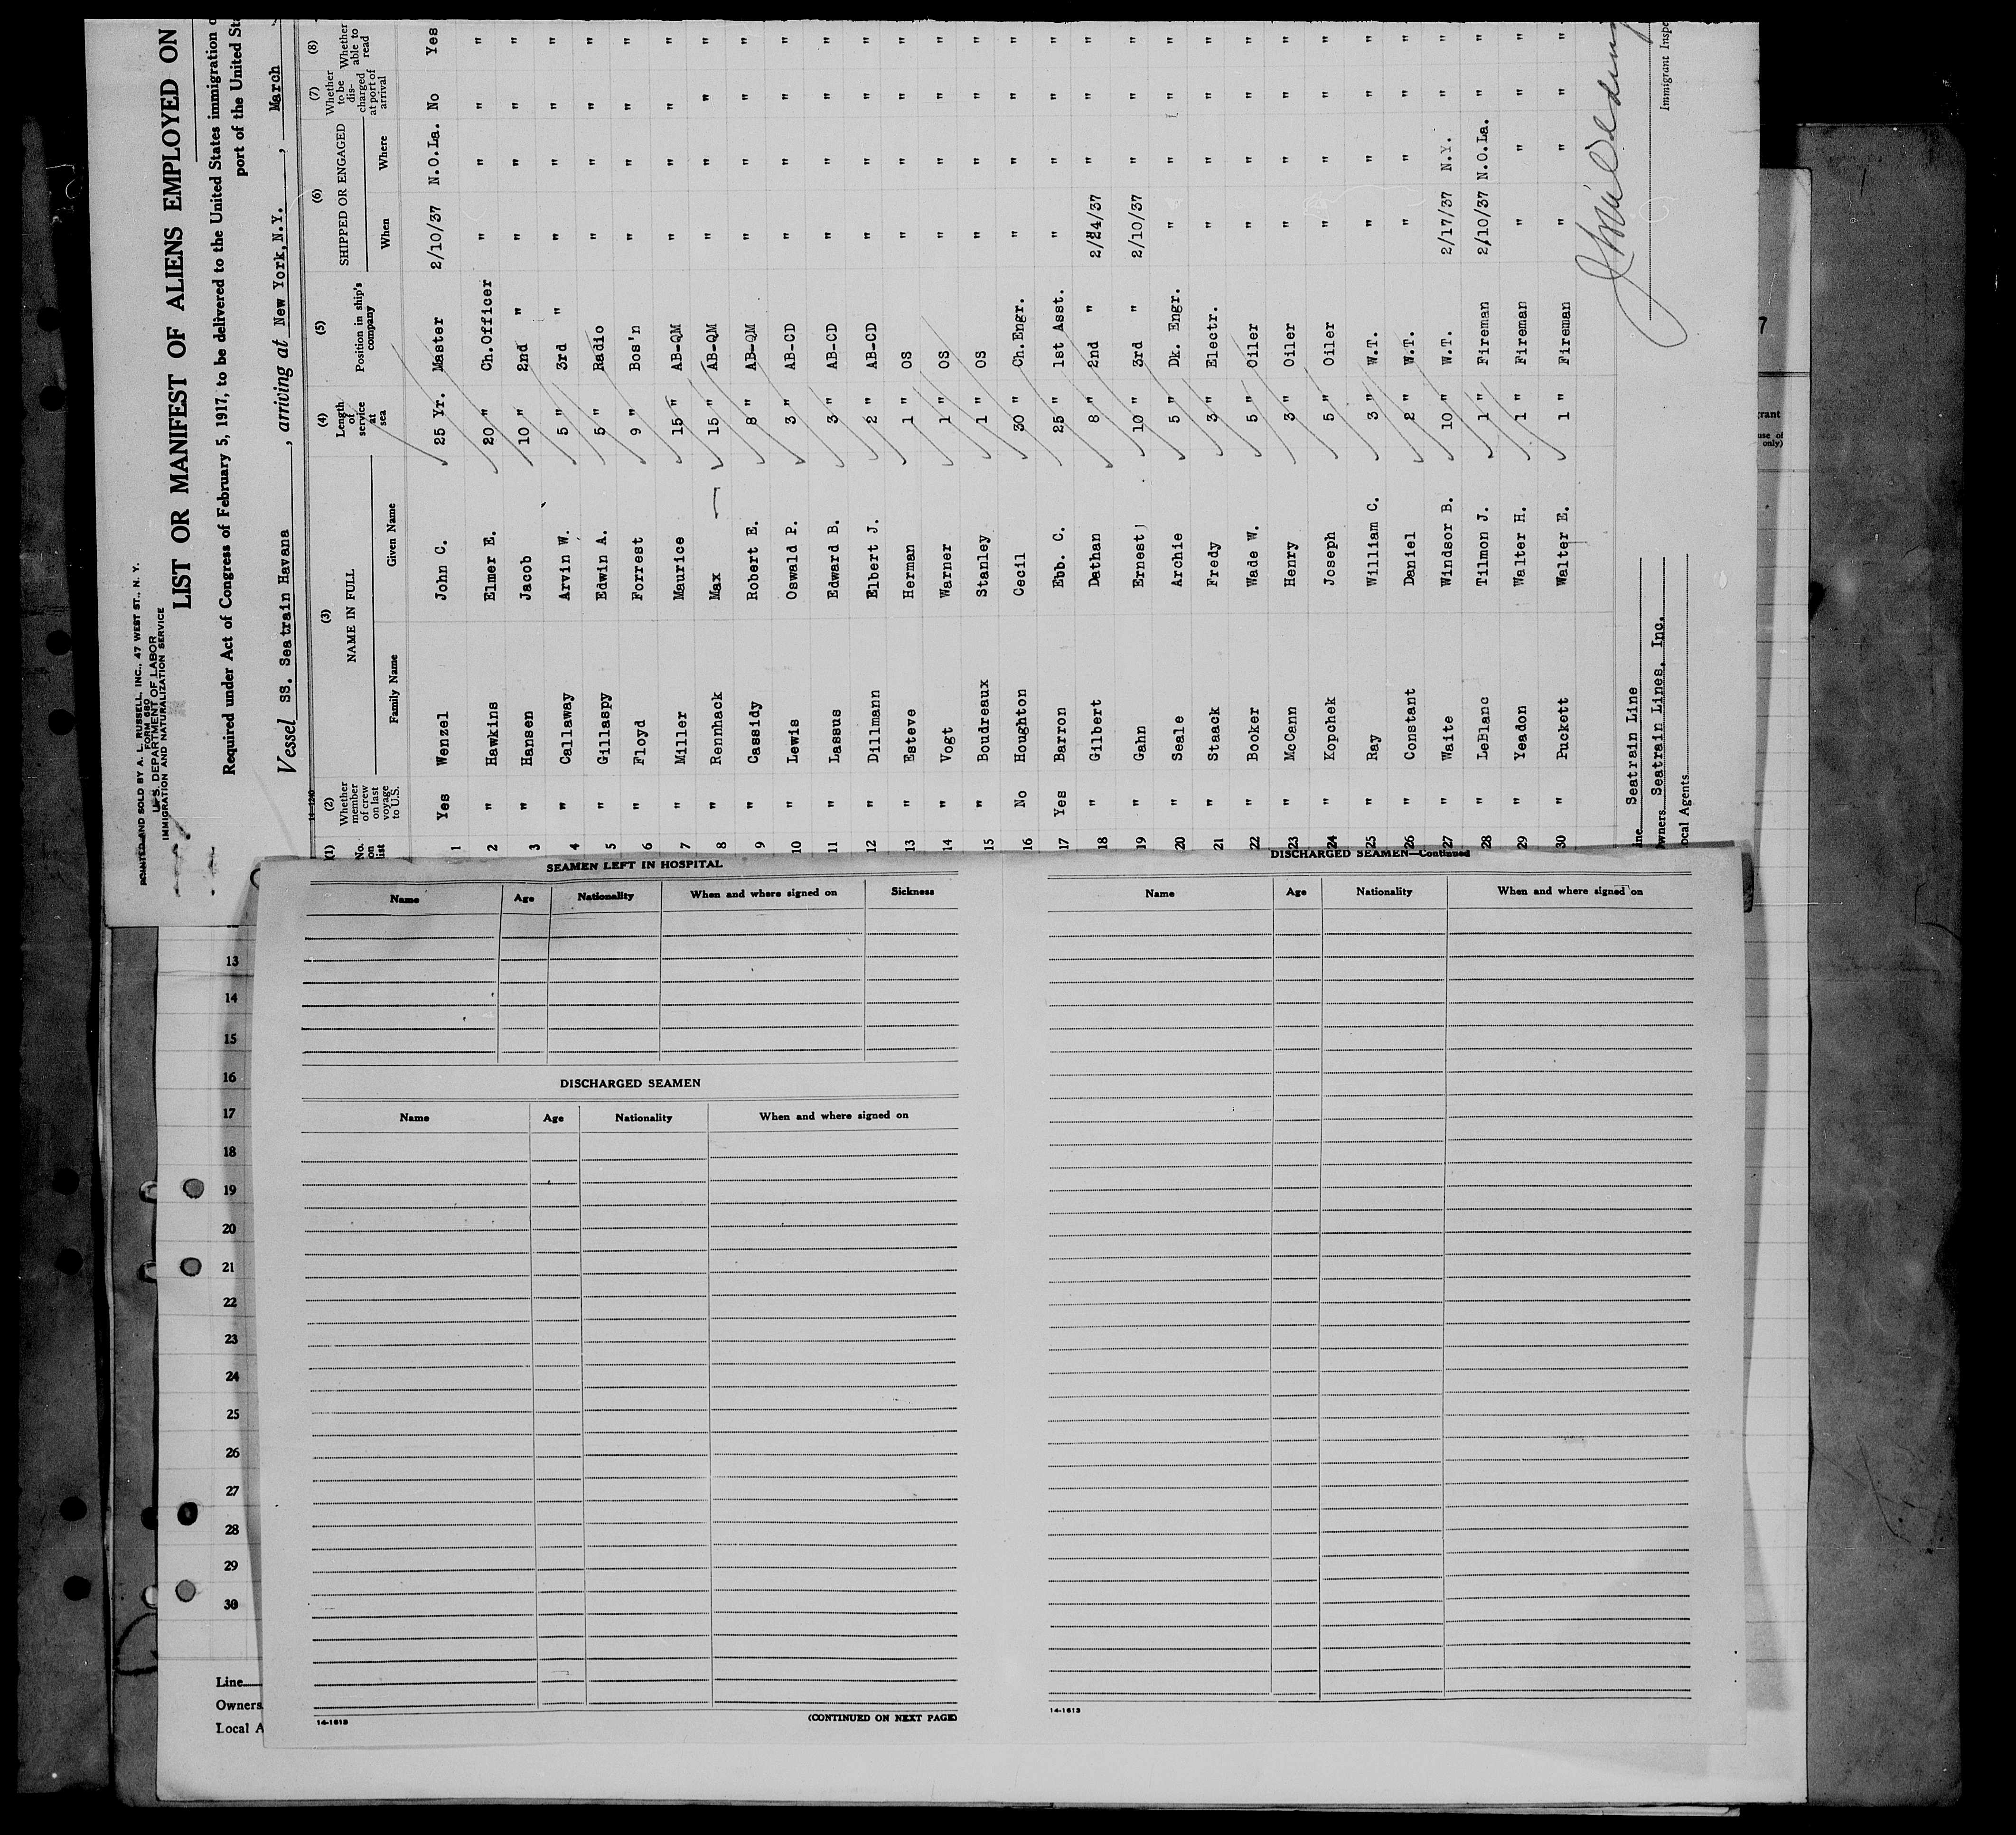 PRINTED AND SOLD BY A. L. RUSSELL, INC., 47 WEST ST., N. Y.
FORM 680
U. S. DEPARTMENT OF LABOR
IMMIGRATION AND NATURALIZATION SERVICE
LIST OR MANIFEST OF ALIENS EMPLOYED ON
Required under Act of Congress of February 5, 1917, to be delivered to the United States immigration
port of the United
Vessel SS. Seatrain Havana, arriving at New York, N.Y., March
(1) (2) (3) (4) (5) (6) (7) (8)
No. on list
Whether member of crew on last voyage to U.S.
NAME IN FULL
Family Name Given Name
Length of service at sea
Position in ship's company
SHIPPED OR ENGAGED
When Where
Whether to be discharged at port of arrival
Whether able to read
1 Yes Wenzel John C. 25 Yr. Master 2/10/37 N.O.La. No Yes
2 " Hawkins Elmer E. 20 " Ch.Officer " " " "
3 " Hansen Jacob 10 " 2nd " " " " "
4 " Callaway Arvin W. 5 " 3rd " " " " "
5 " Gillaspy Edwin A. 5 " Radio " " " "
6 " Floyd Forrest 9 " Bos'n " " " "
7 " Miller Maurice 15 " AB-QM " " " "
8 " Rennhack Max 15 " AB-QM " " " "
9 " Cassidy Robert E. 8 " AB-QM " " " "
10 " Lewis Oswald P. 3 " AB-CD " " " "
11 " Lassus Edward B. 3 " AB-CD " " " "
12 " Dillmann Elbert J. 2 " AB-CD " " " "
13 " Esteve Herman 1 " OS " " " "
14 " Vogt Warner 1 " OS " " " "
15 " Boudreaux Stanley 1 " OS " " " "
16 No Houghton Cecil 30 " Ch.Engr. " " " "
17 Yes Barron Ebb. C. 25 " 1st Asst. " " " "
18 " Gilbert Dathan 8 " 2nd " 2/24/37 " " "
19 " Gahn Ernest 10 " 3rd " 2/10/37 " " "
20 " Seale Archie 5 " Dk. Engr. " " " "
21 " Staack Fredy 3 " Electr. " " " "
22 " Booker Wade W. 5 " Oiler " " " "
23 " McCann Henry 3 " Oiler " " " "
24 " Kopchek Joseph 5 " Oiler " " " "
25 " Ray William C. 3 " W.T. " " " "
26 " Constant Daniel 2 " W.T. " " " "
27 " Waite Windsor B. 10 " W.T. 2/17/37 N.Y. " "
28 " LeBlanc Tilmon J. 1 " Fireman 2/10/37 N.O.La. " "
29 " Yeadon Walter H. 1 " Fireman " " " "
30 " Puckett Walter E. 1 " Fireman " " " "
Seatrain Line
Owners Seatrain Lines, Inc.
Local Agents
Immigrant
SEAMEN LEFT IN HOSPITAL
Name Age Nationality When and where signed on Sickness
DISCHARGED SEAMEN
Name Age Nationality When and where signed on
14-1613 (CONTINUED ON NEXT PAGE)
DISCHARGED SEAMEN—Continued
Name Age Nationality When and where signed on
14-1613
13
14
15
16
17
18
19
20
21
22
23
24
25
26
27
28
29
30
Line
Owners
Local A
7
use of
only)